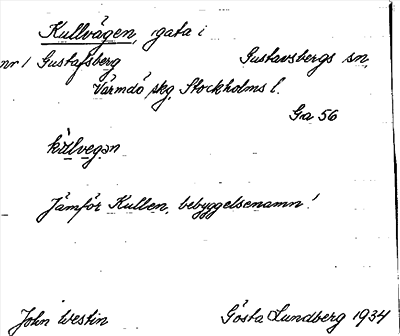 Kullvägen, gata i
nr 1 Gustafsberg Gustavsbergs sn,
Värmdö skg, Stockholms l.
Ga 56
Jämför Kullen, bebyggelsenamn!
John Westin Gösta Lundberg 1934